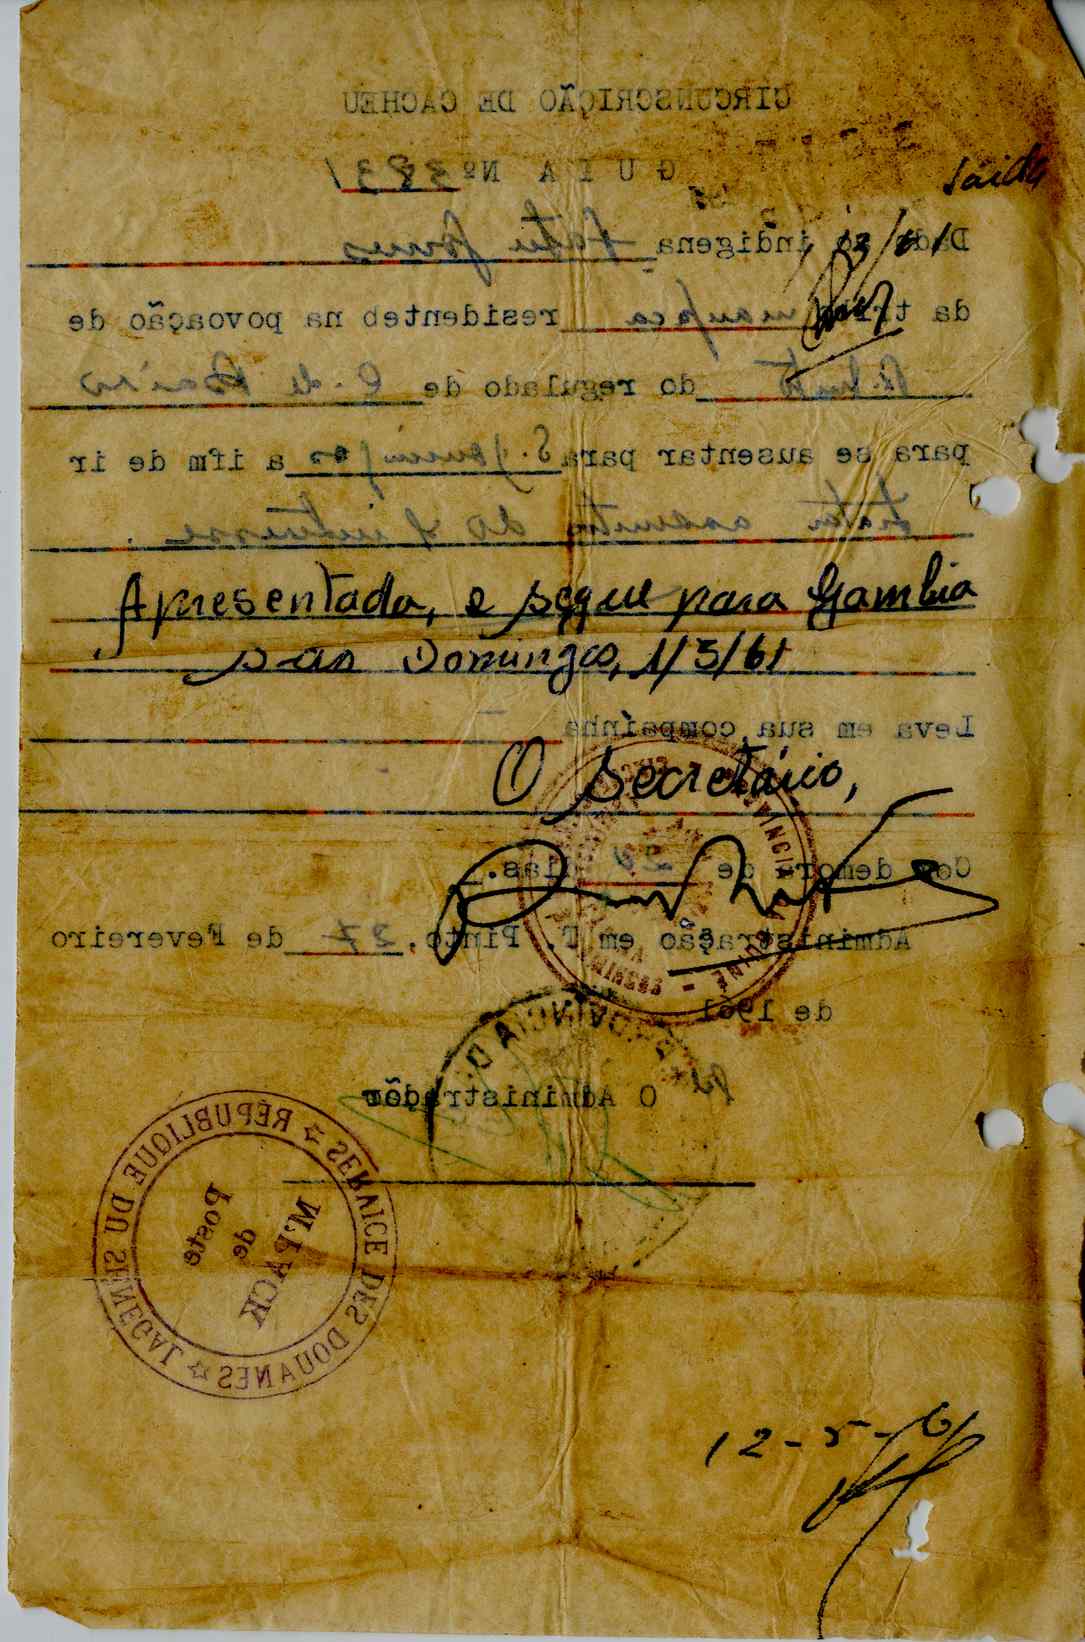 CIRCUNSCRIÇÃO DE CACHEU
GUIA Nº 383/
Saida
Dada indigena
13/
da tribo residenteb na povoação de
do regulado de C. de Baixo
para se ausentar para S. Domingos a ifm de ir
tratar assunto do s/ interesse.
Apresentada, e segue para Gambia
San Domingos, 1/3/61
Leva em sua compaínha
O Secretário,
Com demora de 20 dias.
Administração em T. Pinto, 27 de Fevereiro
de 1961
O Administrador
PROVINCIA DA GUINÉ
PROVINCIA D
RÉPUBLIQUE DU SENEGAL ☆ SERVICE DES DOUANES ☆
Poste
de
M'PACK
12-5-61